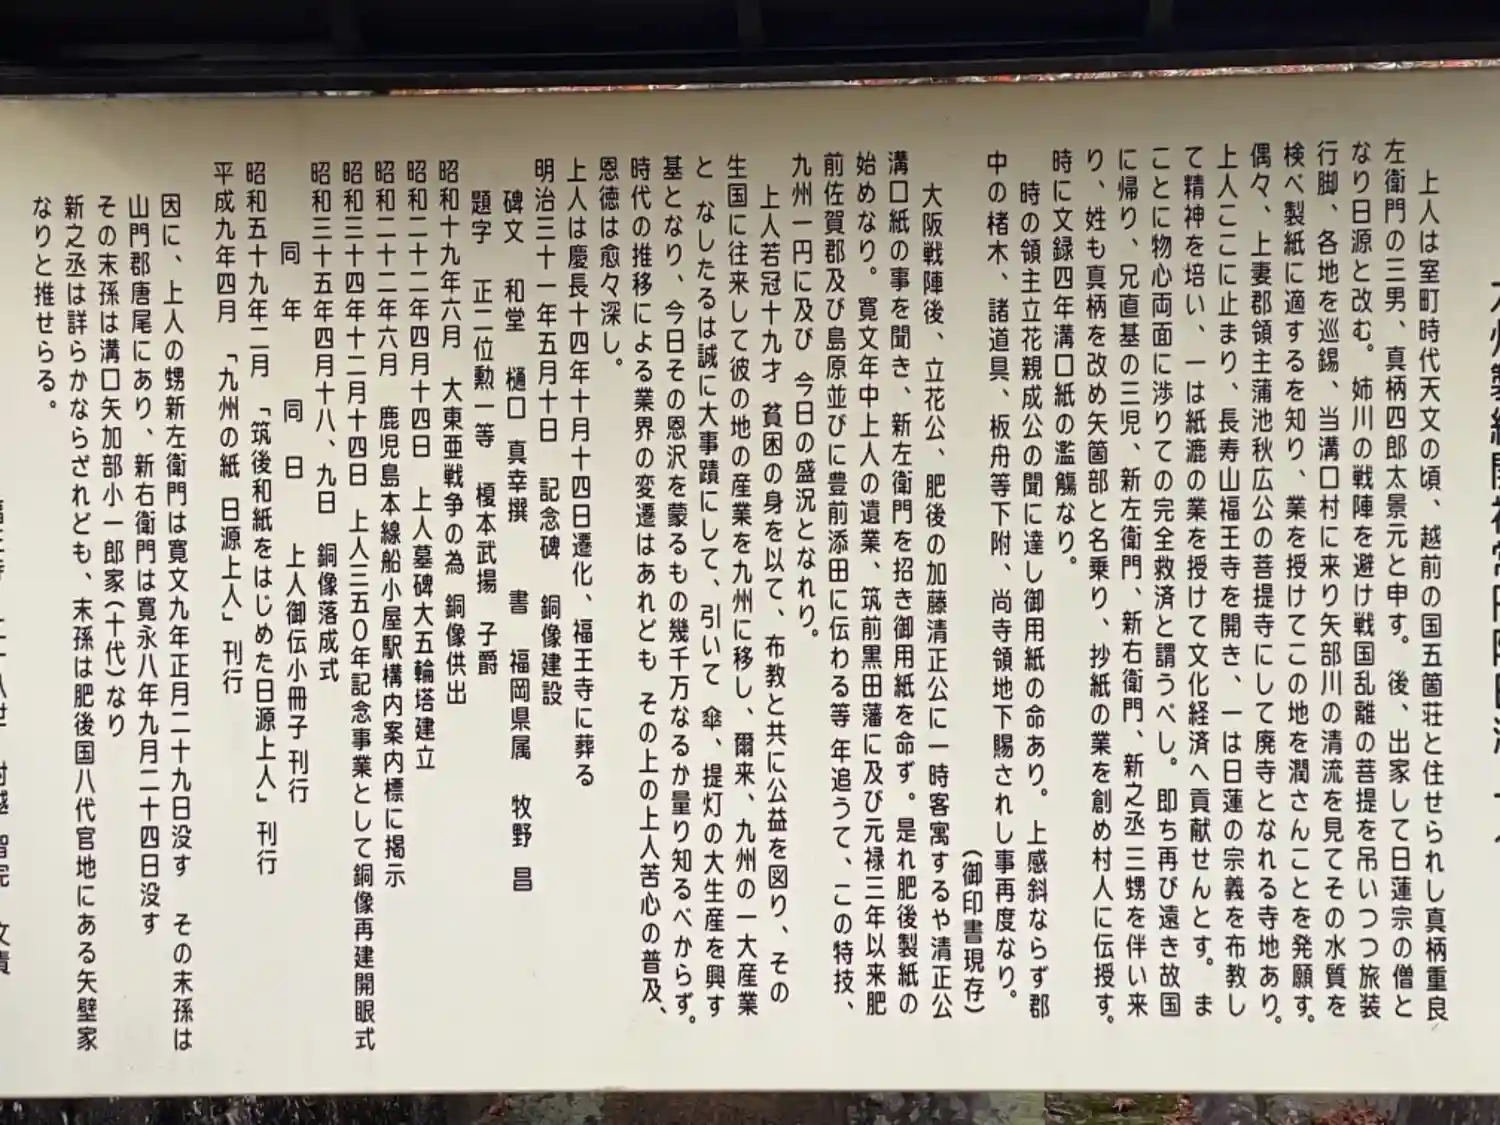 上人は室町時代天文の頃、越前の国五箇荘と住せられし真柄重良
左衛門の三男、真柄四郎太景元と申す。後、出家して日蓮宗の僧と
なり日源と改む。姉川の戦陣を避け戦国乱離の菩提を吊いつつ旅装
行脚、各地を巡錫、当溝口村に来り矢部川の清流を見てその水質を
検べ製紙に適するを知り、業を授けてこの地を潤さんことを発願す。
偶々、上妻郡領主蒲池秋広公の菩提寺にして廃寺となれる寺地あり。
上人ここに止まり、長寿山福王寺を開き、一は日蓮の宗義を布教し
て精神を培い、一は紙漉の業を授けて文化経済へ貢献せんとす。ま
ことに物心両面に渉りての完全救済と謂うべし。即ち再び遠き故国
に帰り、兄直基の三児、新左衛門、新右衛門、新之丞三甥を伴い来
り、姓も真柄を改め矢箇部と名乗り、抄紙の業を創め村人に伝授す。
時に文録四年溝口紙の濫觴なり。
時の領主立花親成公の聞に達し御用紙の命あり。上感斜ならず郡
中の楮木、諸道具、板舟等下附、尚寺領地下賜されし事再度なり。
(御印書現存)
大阪戦陣後、立花公、肥後の加藤清正公に一時客寓するや清正公
溝口紙の事を聞き、新左衛門を招き御用紙を命ず。是れ肥後製紙の
始めなり。寛文年中上人の遺業、筑前黒田藩に及び元禄三年以来肥
前佐賀郡及び島原並びに豊前添田に伝わる等年追うて、この特技、
九州一円に及び 今日の盛況となれり。
上人若冠十九才 貧困の身を以て、布教と共に公益を図り、その
生国に往来して彼の地の産業を九州に移し、爾来、九州の一大産業
と なしたるは誠に大事蹟にして、引いて 傘、提灯の大生産を興す
基となり、今日その恩沢を蒙るもの幾千万なるか量り知るべからず。
時代の推移による業界の変遷はあれども その上の上人苦心の普及、
恩徳は愈々深し。
上人は慶長十四年十月十四日遷化、福王寺に葬る
明治三十一年五月十日 記念碑 銅像建設
碑文 和堂 樋口 真幸撰 書 福岡県属 牧野 昌
題字 正二位勲一等 榎本武揚 子爵
昭和十九年六月 大東亜戦争の為 銅像供出
昭和二十二年四月十四日 上人墓碑大五輪塔建立
昭和二十二年六月 鹿児島本線船小屋駅構内案内標に掲示
昭和三十四年十二月十四日 上人三五〇年記念事業として銅像再建開眼式
昭和三十五年四月十八、九日 銅像落成式
同 年 同 日 上人御伝小冊子 刊行
昭和五十九年二月 「筑後和紙をはじめた日源上人」刊行
平成九年四月 「九州の紙 日源上人」刊行
因に、上人の甥新左衛門は寛文九年正月二十九日没す その末孫は
山門郡唐尾にあり、新右衛門は寛永八年九月二十四日没す
その末孫は溝口矢加部小一郎家(十代)なり
新之丞は詳らかならざれども、末孫は肥後国八代官地にある矢壁家
なりと推せらる。